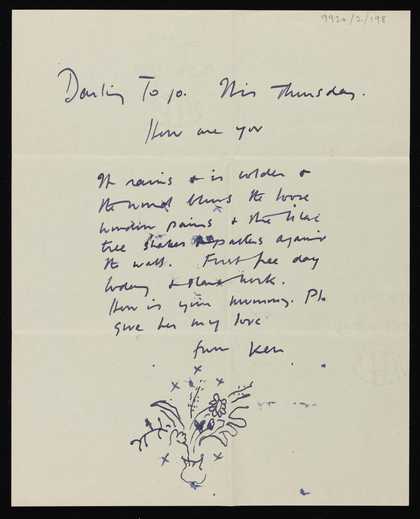 9920/2/198
Darling To jo. This Thursday.
How are you
It rains & is colder &
the wind blows the loose
window pains & the lilac
tree shakes & patters against
the wall. First free day
today & start work.
How is your mummy. Pl
give her my love
from Ken